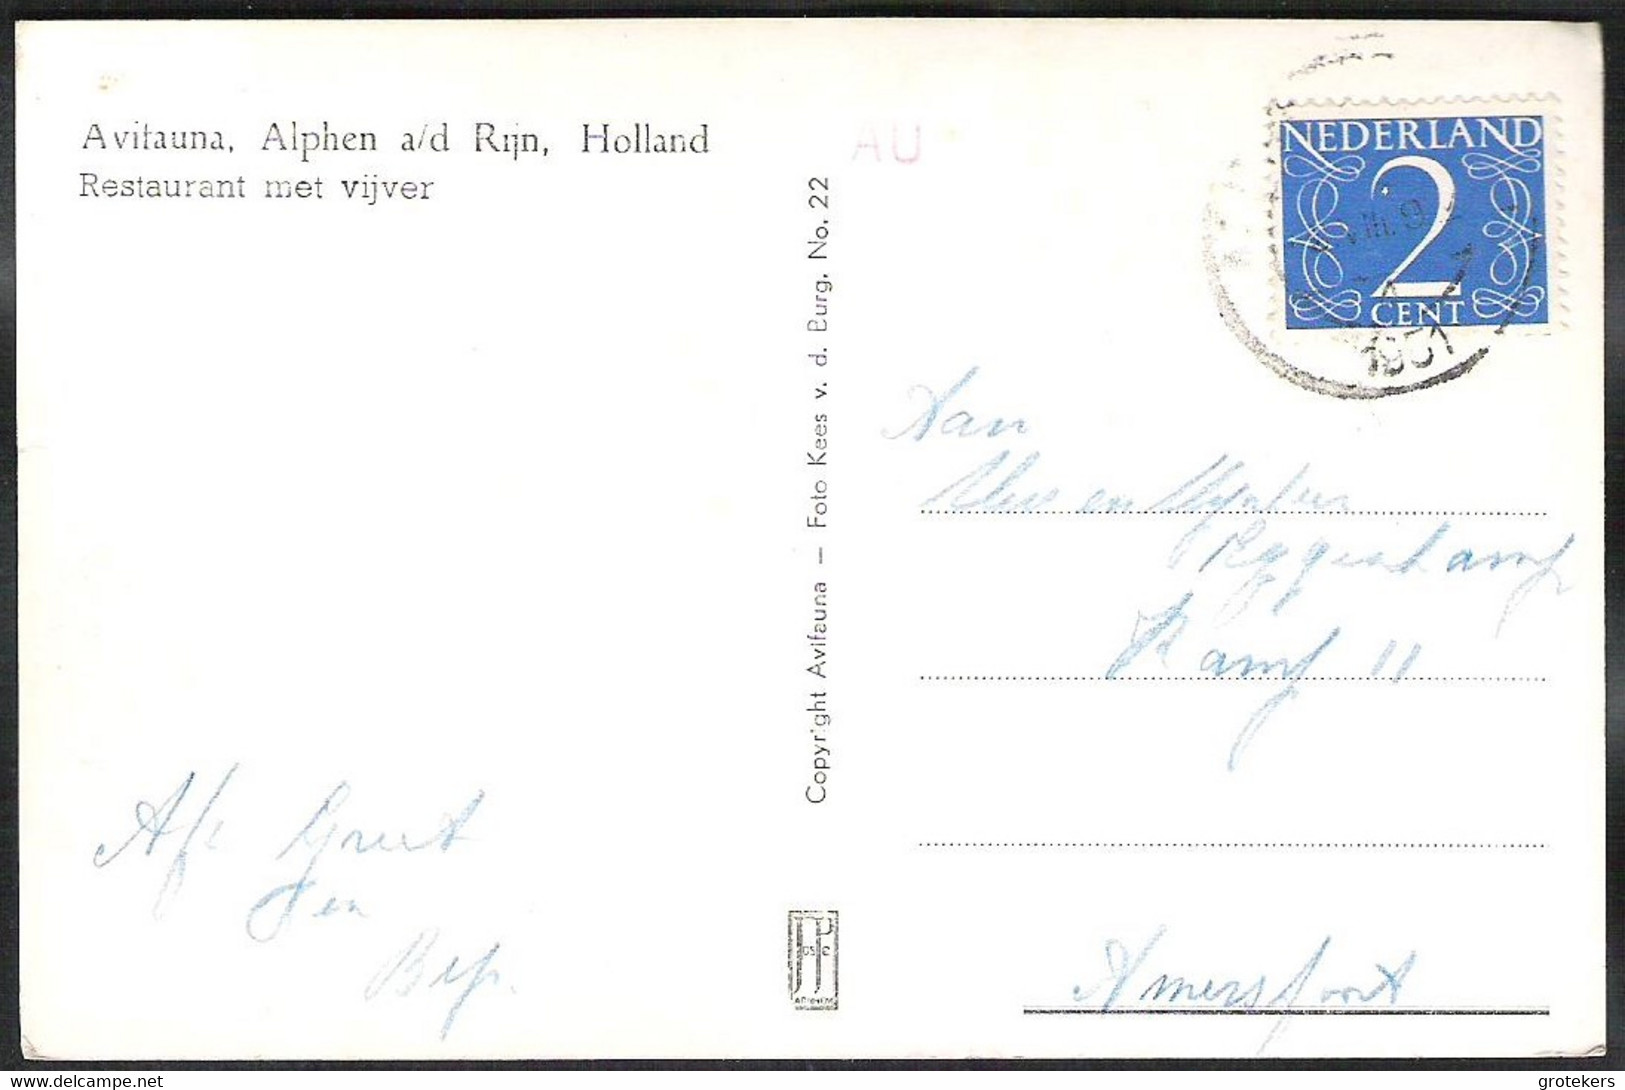 Avifauna, Alphen a/d Rijn, Holland
Restaurant met vijver
AU
Copyright Avifauna – Foto Kees v. d. Burg. No. 22
NEDERLAND
2
CENT
VIII. 9
1951
Aan
en
Kamp 11
Amersfoort
Afz Greet
en
Bep.
JosPé
ARNHEM
www.delcampe.net
grotekers